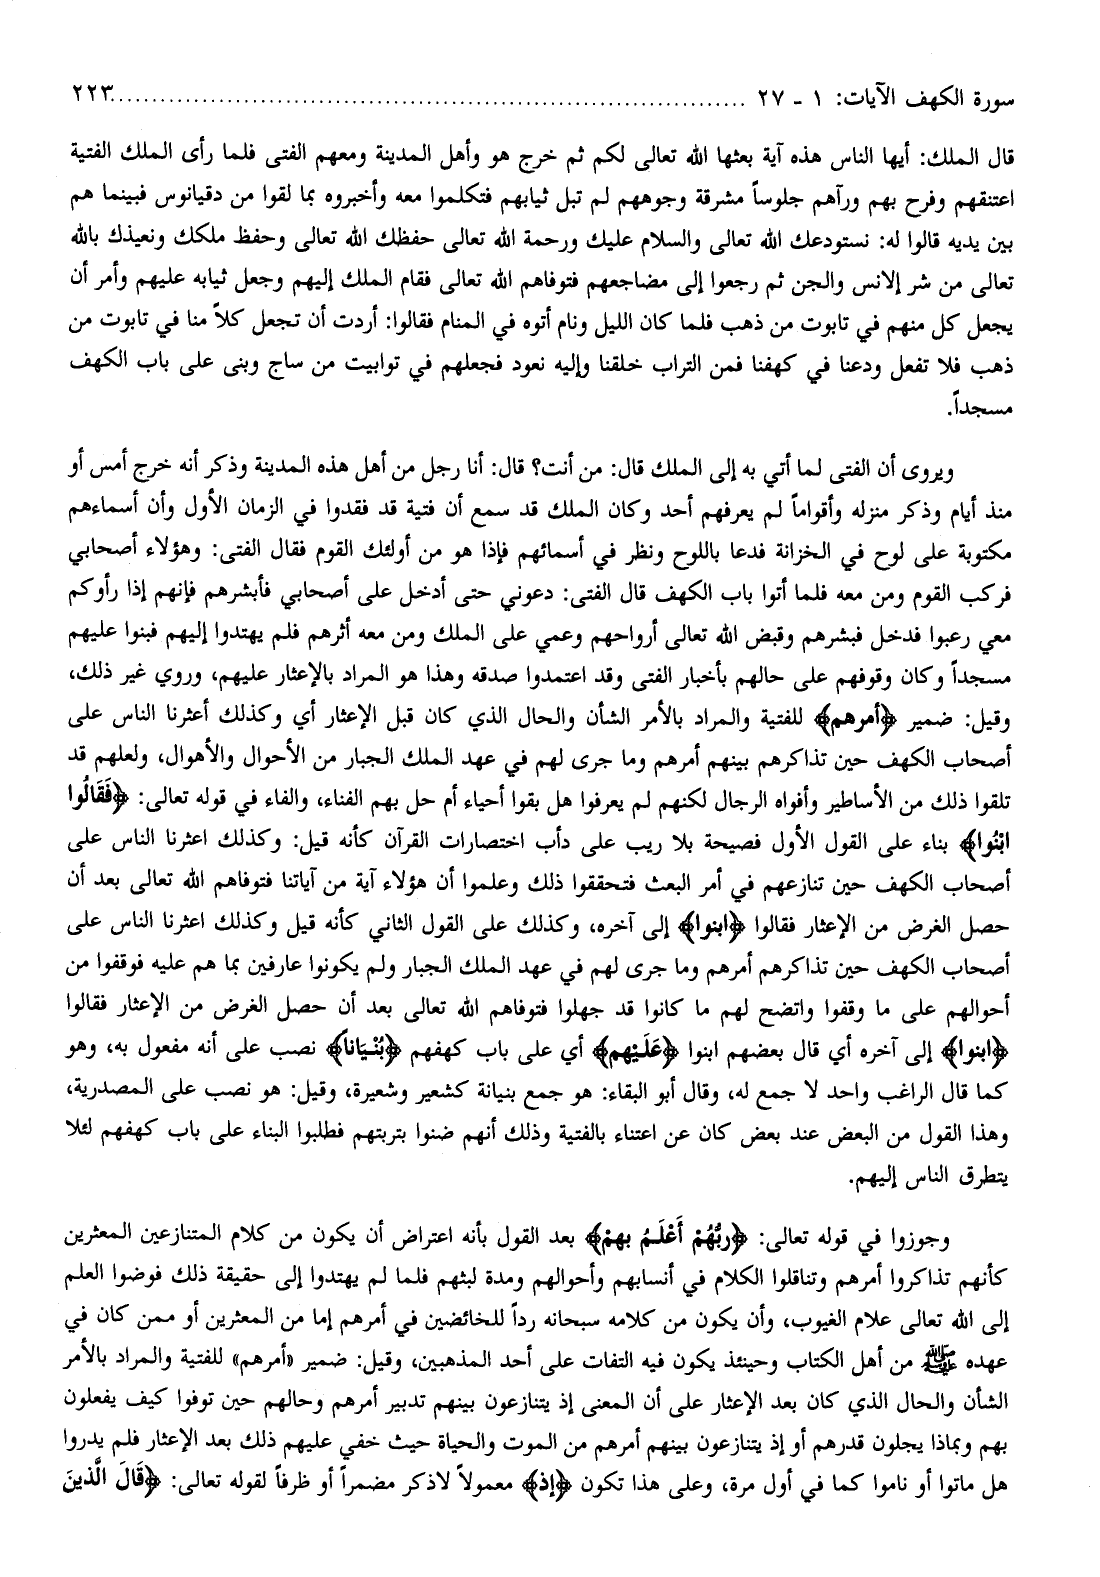 سورة الكهف الآيات: ١ - ٢٧ ........................................................................... ٢٢٣
قال الملك: أيها الناس هذه آية بعثها الله تعالى لكم ثم خرج هو وأهل المدينة ومعهم الفتى فلما رأى الملك الفتية
اعتنقهم وفرح بهم ورآهم جلوساً مشرقة وجوههم لم تبل ثيابهم فتكلموا معه وأخبروه بما لقوا من دقيانوس فبينما هم
بين يديه قالوا له: نستودعك الله تعالى والسلام عليك ورحمة الله تعالى حفظك الله تعالى وحفظ ملكك ونعيذك بالله
تعالى من شر إلانس والجن ثم رجعوا إلى مضاجعهم فتوفاهم الله تعالى فقام الملك إليهم وجعل ثيابه عليهم وأمر أن
يجعل كل منهم في تابوت من ذهب فلما كان الليل ونام أتوه في المنام فقالوا: أردت أن تجعل كلاً منا في تابوت من
ذهب فلا تفعل ودعنا في كهفنا فمن التراب خلقنا وإليه نعود فجعلهم في توابيت من ساج وبنى على باب الكهف
مسجداً.
ويروى أن الفتى لما أتي به إلى الملك قال: من أنت؟ قال: أنا رجل من أهل هذه المدينة وذكر أنه خرج أمس أو
منذ أيام وذكر منزله وأقواماً لم يعرفهم أحد وكان الملك قد سمع أن فتية قد فقدوا في الزمان الأول وأن أسماءهم
مكتوبة على لوح في الخزانة فدعا باللوح ونظر في أسمائهم فإذا هو من أولئك القوم فقال الفتى: وهؤلاء أصحابي
فركب القوم ومن معه فلما أتوا باب الكهف قال الفتى: دعوني حتى أدخل على أصحابي فأبشرهم فإنهم إذا رأوكم
معي رعبوا فدخل فبشرهم وقبض الله تعالى أرواحهم وعمي على الملك ومن معه أثرهم فلم يهتدوا إليهم فبنوا عليهم
مسجداً وكان وقوفهم على حالهم بأخبار الفتى وقد اعتمدوا صدقه وهذا هو المراد بالإعثار عليهم، وروي غير ذلك،
وقيل: ضمير ﴿أمرهم﴾ للفتية والمراد بالأمر الشأن والحال الذي كان قبل الإعثار أي وكذلك أعثرنا الناس على
أصحاب الكهف حين تذاكرهم بينهم أمرهم وما جرى لهم في عهد الملك الجبار من الأحوال والأهوال، ولعلهم قد
تلقوا ذلك من الأساطير وأفواه الرجال لكنهم لم يعرفوا هل بقوا أحياء أم حل بهم الفناء، والفاء في قوله تعالى: ﴿فَقَالُوا
ابْنُوا﴾ بناء على القول الأول فصيحة بلا ريب على دأب اختصارات القرآن كأنه قيل: وكذلك اعثرنا الناس على
أصحاب الكهف حين تنازعهم في أمر البعث فتحققوا ذلك وعلموا أن هؤلاء آية من آياتنا فتوفاهم الله تعالى بعد أن
حصل الغرض من الإعثار فقالوا ﴿ابنوا﴾ إلى آخره، وكذلك على القول الثاني كأنه قيل وكذلك اعثرنا الناس على
أصحاب الكهف حين تذاكرهم أمرهم وما جرى لهم في عهد الملك الجبار ولم يكونوا عارفين بما هم عليه فوقفوا من
أحوالهم على ما وقفوا واتضح لهم ما كانوا قد جهلوا فتوفاهم الله تعالى بعد أن حصل الغرض من الإعثار فقالوا
﴿ابنوا﴾ إلى آخره أي قال بعضهم ابنوا ﴿عَلَيْهم﴾ أي على باب كهفهم ﴿بُنْيَاناً﴾ نصب على أنه مفعول به، وهو
كما قال الراغب واحد لا جمع له، وقال أبو البقاء: هو جمع بنيانة كشعير وشعيرة، وقيل: هو نصب على المصدرية،
وهذا القول من البعض عند بعض كان عن اعتناء بالفتية وذلك أنهم ضنوا بتربتهم فطلبوا البناء على باب كهفهم لئلا
يتطرق الناس إليهم.
وجوزوا في قوله تعالى: ﴿ربُّهُمْ أَعْلَمُ بهمْ﴾ بعد القول بأنه اعتراض أن يكون من كلام المتنازعين المعثرين
كأنهم تذاكروا أمرهم وتناقلوا الكلام في أنسابهم وأحوالهم ومدة لبثهم فلما لم يهتدوا إلى حقيقة ذلك فوضوا العلم
إلى الله تعالى علام الغيوب، وأن يكون من كلامه سبحانه رداً للخائضين في أمرهم إما من المعثرين أو ممن كان في
عهده ﷺ من أهل الكتاب وحينئذ يكون فيه التفات على أحد المذهبين، وقيل: ضمير «أمرهم» للفتية والمراد بالأمر
الشأن والحال الذي كان بعد الإعثار على أن المعنى إذ يتنازعون بينهم تدبير أمرهم وحالهم حين توفوا كيف يفعلون
بهم وبماذا يجلون قدرهم أو إذ يتنازعون بينهم أمرهم من الموت والحياة حيث خفي عليهم ذلك بعد الإعثار فلم يدروا
هل ماتوا أو ناموا كما في أول مرة، وعلى هذا تكون ﴿إذ﴾ معمولاً لاذكر مضمراً أو ظرفاً لقوله تعالى: ﴿قَالَ الَّذينَ